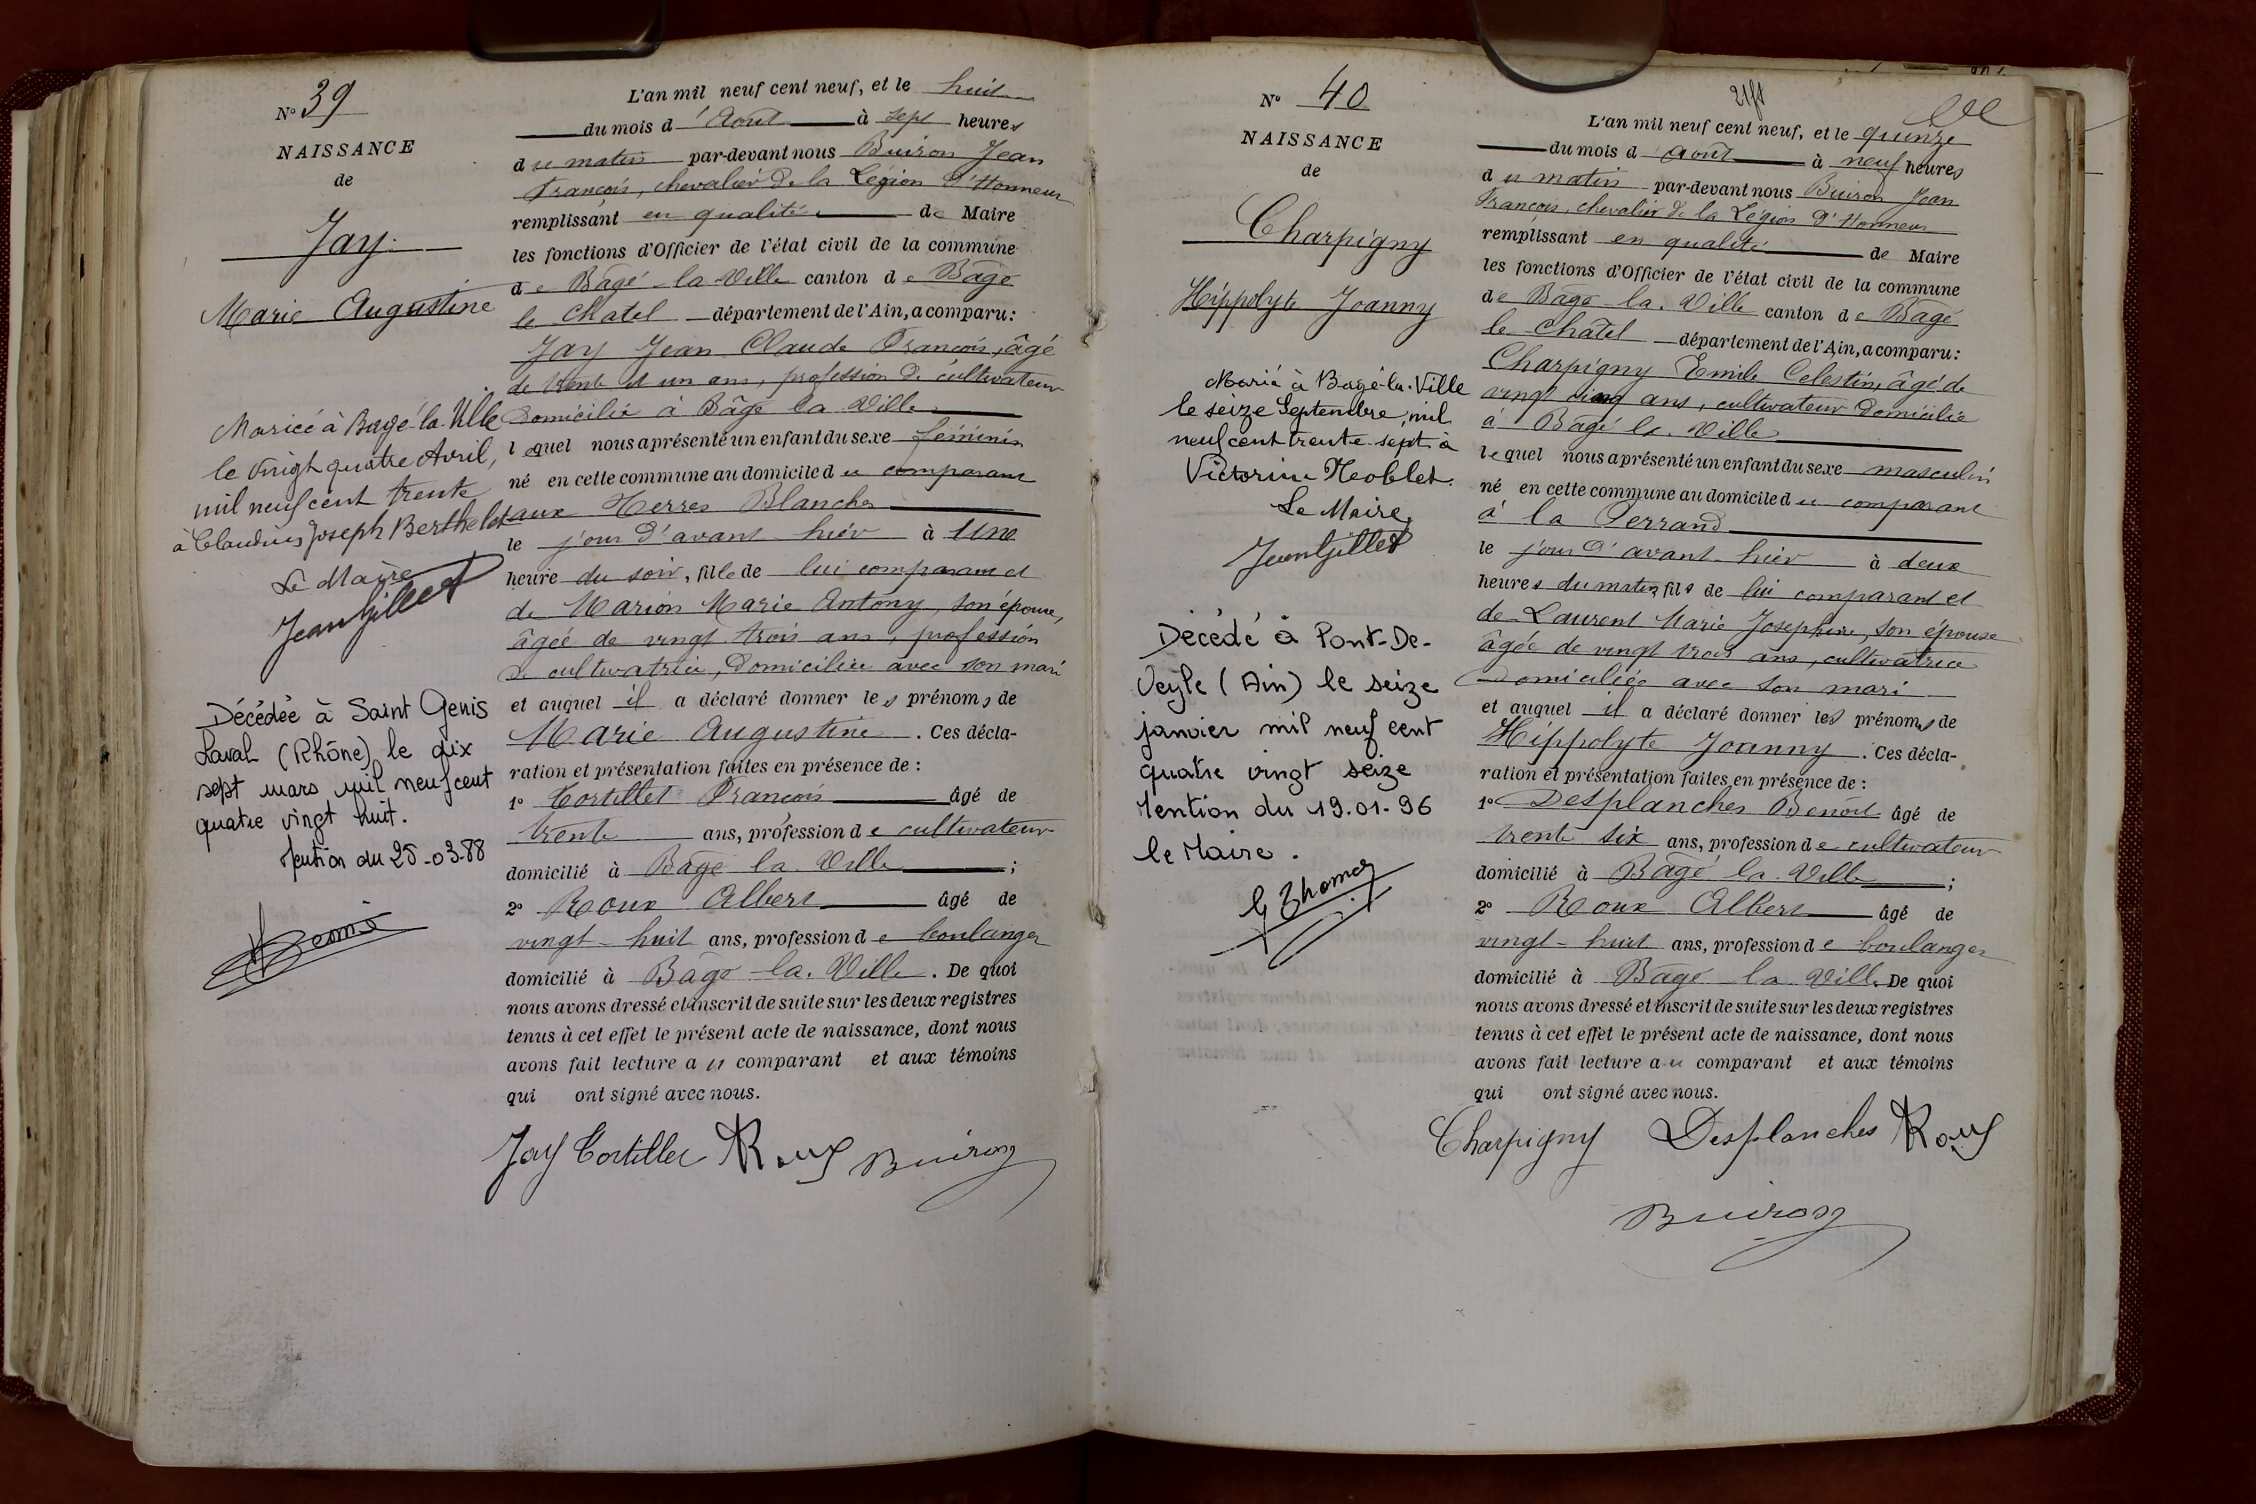 N° 39
NAISSANCE
de
Jay
Marie Augustine
Mariée à Bagé-la-Ville
le vingt quatre Avril,
mil neuf cent trente
à Claudius Joseph Berthelet
Le Maire
Jean Gillet
Décédée à Saint Genis
Laval (Rhône) le dix
sept mars mil neuf cent
quatre vingt huit.
Mention du 25-03-88
L'an mil neuf cent neuf, et le huit
du mois d'Août à sept heures
du matin par-devant nous Buiron Jean
François, chevalier de la Légion d'Honneur
remplissant en qualité de Maire
les fonctions d'Officier de l'état civil de la commune
de Bâgé-la-Ville canton de Bâgé
le Chatel département de l'Ain, a comparu:
Jay Jean Claude François, âgé
de trente et un ans, profession de cultivateur
domicilié à Bâgé la Ville
lequel nous a présenté un enfant du sexe féminin
né en cette commune au domicile du comparant
aux Terres Blanches
le jour d'avant hier à une
heure du soir, fille de lui comparant et
de Marion Marie Antony, son épouse,
âgée de vingt trois ans, profession
de cultivatrice, domiciliée avec son mari
et auquel il a déclaré donner les prénoms de
Marie Augustine. Ces décla-
ration et présentation faites en présence de:
1° Cortillet François âgé de
trente ans, profession de cultivateur
domicilié à Bâgé la Ville;
2° Roux Albert âgé de
vingt-huit ans, profession de boulanger
domicilié à Bâgé-la-Ville. De quoi
nous avons dressé et inscrit de suite sur les deux registres
tenus à cet effet le présent acte de naissance, dont nous
avons fait lecture au comparant et aux témoins
qui ont signé avec nous.
Jay Cortillet Roux Buiron
N° 40
NAISSANCE
de
Charpigny
Hippolyte Joanny
Marié à Bagé-la-Ville
le seize Septembre, mil
neuf cent trente sept à
Victorine Neoblet.
Le Maire,
Jean Gillet
Décédé à Pont-De-
Veyle (Ain) le seize
janvier mil neuf cent
quatre vingt seize
Mention du 19.01-96
le Maire.
L'an mil neuf cent neuf, et le quinze
du mois d'Août à neuf heures
du matin par-devant nous Buiron Jean
François, chevalier de la Légion d'Honneur
remplissant en qualité de Maire
les fonctions d'Officier de l'état civil de la commune
de Bâgé la Ville canton de Bâgé
le Châtel département de l'Ain, a comparu:
Charpigny Emile Celestin, âgé de
vingt cinq ans, cultivateur domicilié
à Bâgé la Ville
lequel nous a présenté un enfant du sexe masculin
né en cette commune au domicile du comparant
à la Perrand
le jour d'avant-hier à deux
heures du matin fils de lui comparant et
de Laurent Marie Josephine, son épouse
âgée de vingt trois ans, cultivatrice
domiciliée avec son mari
et auquel il a déclaré donner les prénoms de
Hippolyte Joanny. Ces décla-
ration et présentation faites en présence de:
1° Desplanches Benoit âgé de
trente six ans, profession de cultivateur
domicilié à Bâgé la Ville;
2° Roux Albert âgé de
vingt-huit ans, profession de boulanger
domicilié à Bâgé la Ville. De quoi
nous avons dressé et inscrit de suite sur les deux registres
tenus à cet effet le présent acte de naissance, dont nous
avons fait lecture au comparant et aux témoins
qui ont signé avec nous.
Charpigny Desplanches Roux
Buiron